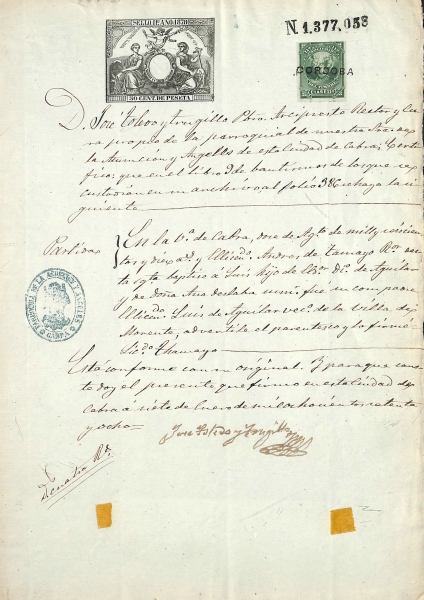 SELLO 11º AÑO 1878
N 1.377.058
50 CENT. DE PESETA
CORDOBA
D. José Toledo y Trugillo Pbro. Arcipreste Rector y Cu-
ra propio de la parroquial de nuestra Señora de
la Asuncion y Angeles de esta Ciudad de Cabra; Certi-
fico: que en el libro de bautismos de los que se
custodian en mi archivo al folio 38 se haya la si-
guiente
Partida
En la Vª de Cabra, doce de Agto de mill y seiscien-
tos y diez as. yo el licdo. Andres de Tamayo Ror. des-
ta ygla baptice a Luis hijo de
y de doña Ana su mr. fue su compadre
el licendo. Luis de Aguilar vecº de la Villa de
Morente, advertile el parentesco y lo firme
Licdo. Thamayo
Está conforme con su original. Y para que cons-
te doy el presente que firmo en esta Ciudad de
Cabra á siete de Enero de mil ochocientos setenta
y ocho
José Toledo y Trugillo
PARROQUIA DE LA ASUNCION Y ANGELES
CABRA